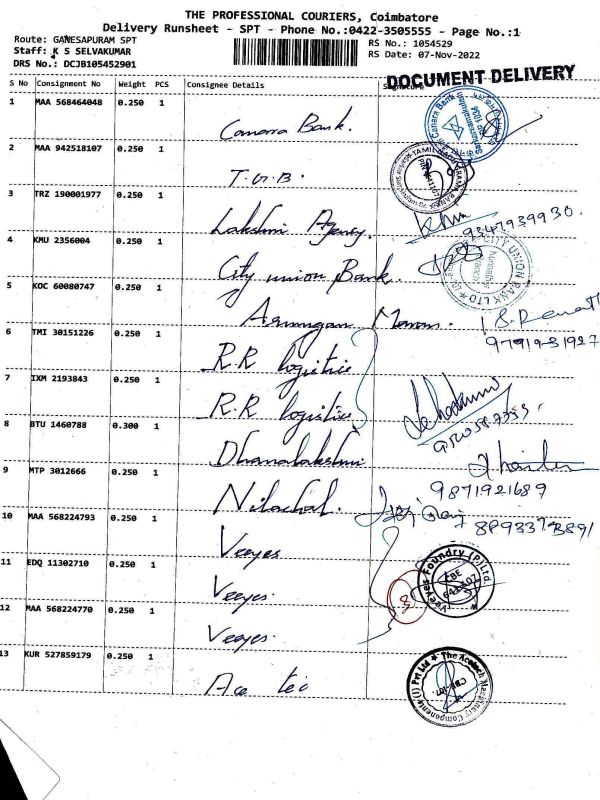 THE PROFESSIONAL COURIERS, Coimbatore
Delivery Runsheet - SPT - Phone No.:0422-3505555 - Page No.:1
Route: GANESAPURAM SPT RS No.: 1054529
Staff: K S SELVAKUMAR RS Date: 07-Nov-2022
DRS No.: DCJB105452901
DOCUMENT DELIVERY
S No Consignment No Weight PCS Consignee Details Signature
1 MAA 568464048 0.250 1 Canara Bank.
Canara Bank
2 MAA 942518107 0.250 1 T.G.B.
3 TRZ 190001977 0.250 1 Lakshmi Agency. 9347939930.
4 KMU 2356004 0.250 1 City union Bank.
CITY UNION BANK LTD
5 KOC 60080747 0.250 1 Arumugam
6 TMI 30151226 0.250 1 R.R logistics
7 IXM 2193843 0.250 1 R.R logistics
8 BTU 1460788 0.300 1 Dhanalakshmi
9 MTP 3012666 0.250 1 Nilachal. 9871921689
10 MAA 568224793 0.250 1 Veeyes
11 EDQ 11302710 0.250 1 Veeyes.
Veeyes Foundry (P) Ltd.
CBE
3
12 MAA 568224770 0.250 1 Veeyes.
13 KUR 527859179 0.250 1 Ace tec
The Acetech Machinery Components (I) Pvt Ltd